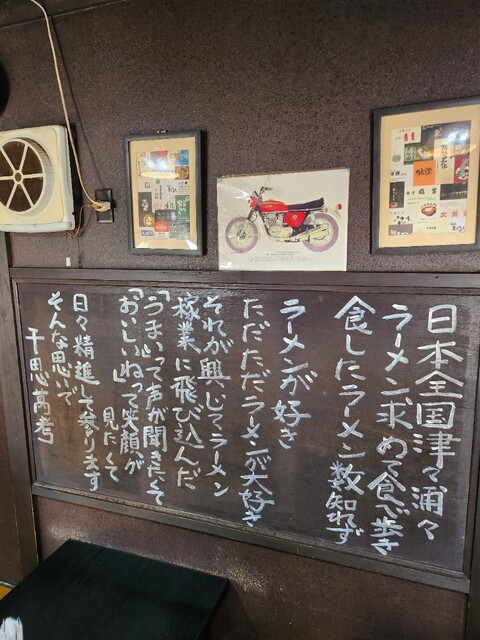 日本全国津々浦々
ラーメン求めて食べ歩き
食したラーメン数知れず
ラーメンが好き
ただただラーメンが大好き
それが興じてラーメン
稼業に飛び込んだ
「うまい」って声が聞きたくて
「おいしいね」って笑顔が
見たくて
日々精進して参ります
そんな思いで
千思萬考